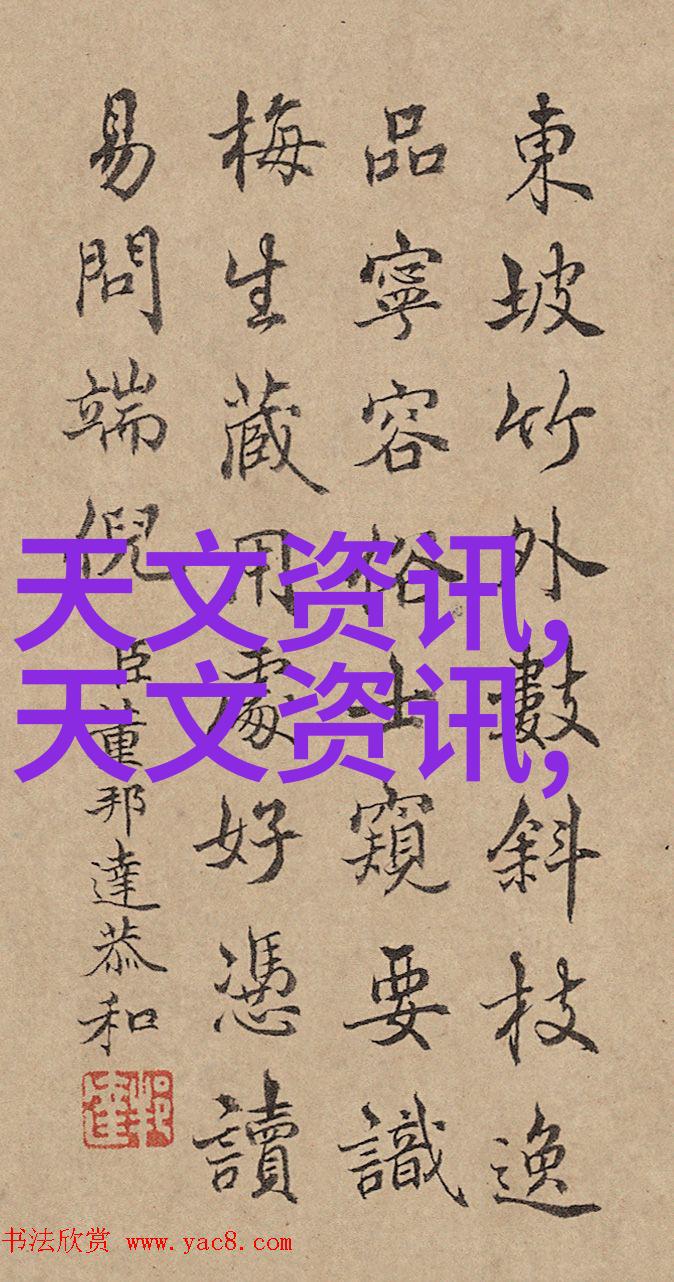 東坡竹外數斜枝逸
品寧容俗士窺要識
梅生藏用處好憑讀
易問端倪臣董邦達恭和
邦達
天文资讯,
天文资讯,
书法欣赏 www.yac8.com